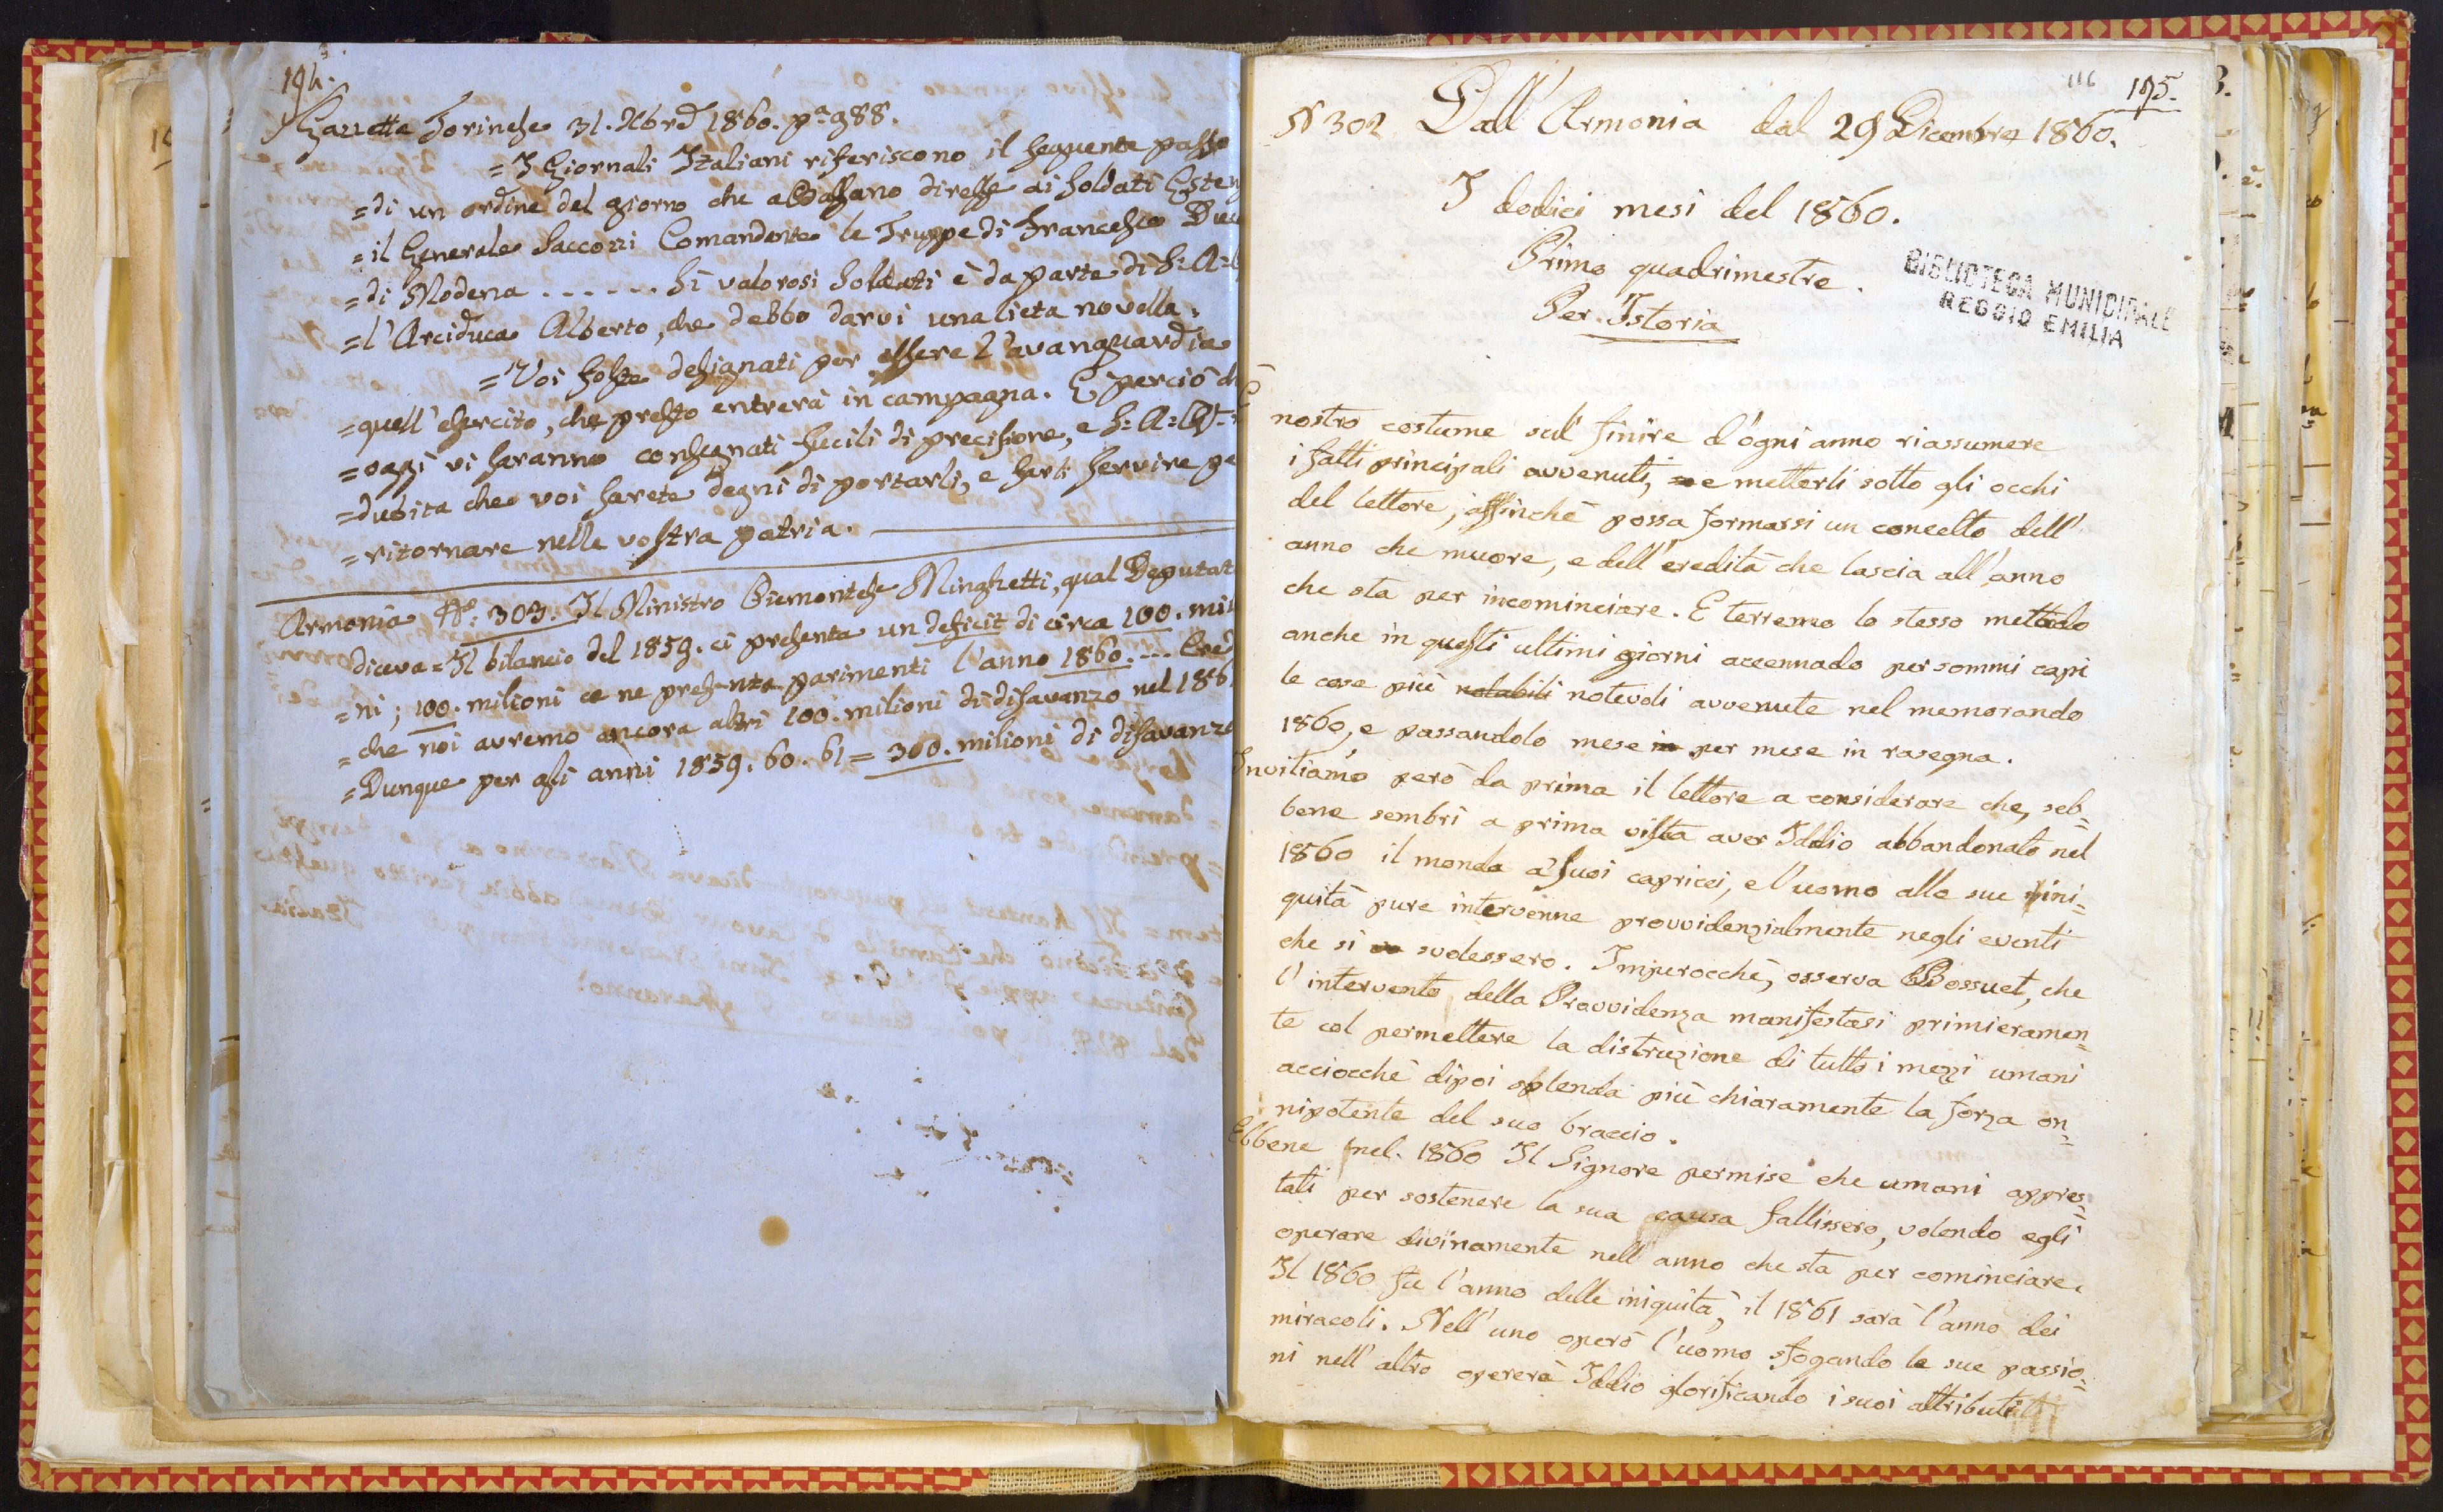 194.
Gazzetta Torinese 31. Xbre 1860. pa 988.
= I Giornali Italiani riferiscono il seguente passo
= di un ordine del giorno che a Bassano diresse ai soldati Esten
= il Generale Saccozzi Comandante le Truppe di Francesco
= di Modena ...... Si valorosi Soldati è da parte di S: A:
= l'Arciduca Alberto, che debbo darvi una lieta novella.
= Voi foste designati per essere l'avanguardia
= quell'esercito, che presto entrerà in campagna. E perciò
= oggi vi saranno consegnati fucili di precisione, e S: A:
= dubita che voi sarete degni di portarli, e farli servire pe
= ritornare nella vostra patria.
Armonia No: 303. Il Ministro Piemontese Minghetti, qual Deputat
diceva = Il bilancio del 1859. ci presenta un deficit di circa 100. mil
= ni; 100. milioni ce ne presenta parimenti l'anno 1860. ... Cred
= che noi avremo ancora altri 100. milioni di disavanzo nel 1861
= Dunque per gli anni 1859. 60. 61 = 300. milioni di disavanzo
116
195.
N 302 Dall'Armonia del 29 Dicembre 1860.
I dodici mesi del 1860.
Primo quadrimestre.
Per Istoria
BIBLIOTECA MUNICIPALE
REGGIO EMILIA
È
nostro costume sul finire d'ogni anno riassumere
i fatti principali avvenuti, e metterli sotto gli occhi
del lettore, affinchè possa formarsi un concetto dell'
anno che muore, e dell'eredità che lascia all'anno
che sta per incominciare. E terremo lo stesso mettodo
anche in questi ultimi giorni accennado per sommi capi
le cose più notabili notevoli avvenute nel memorando
1860, e passandolo mese in per mese in rasegna.
Invitiamo però da prima il lettore a considerare che, seb=
bene sembri a prima vista aver Iddio abbandonato nel
1860 il mondo a' suoi capricci, e l'uomo alle sue ini=
quità pure intervenne provvidenzialmente negli eventi
che si svolessero. Imperocchè, osserva Bossuet, che
l'intervento della Provvidenza manifestasi primieramen=
te col permettere la distruzione di tutti i mezzi umani
acciocchè dipoi splenda più chiaramente la forza on=
nipotente del suo braccio.
Ebbene nel 1860 Il Signore permise che umani appres=
tati per sostenere la sua causa fallissero, volendo egli
operare divinamente nell'anno che sta per cominciare.
Il 1860 fu l'anno delle iniquità, il 1861 sarà l'anno dei
miracoli. Nell'uno operò l'uomo sfogando le sue passio=
ni nell'altro opererà Iddio glorificando i suoi attributi